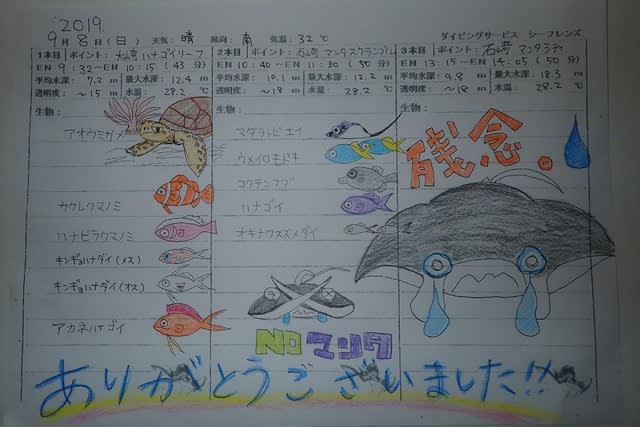 2019.
9月8日(日) 天気: 晴 風向: 南 気温: 32℃ ダイビングサービス シーフレンズ
1本目 ポイント: 大崎ハナゴイリーフ
EN 9:32~EN 10:15 (43 分)
平均水深: 7.2 m 最大水深: 12.4 m
透明度: ~15 m 水温: 28.2 ℃
生物:
アオウミガメ
カクレクマノミ
ハナビラクマノミ
キンギョハナダイ(メス)
キンギョハナダイ(オス)
アカネハナゴイ
2本目 ポイント: 石崎 マンタスクランブル
EN 10:40~EN 11:30 (50 分)
平均水深: 10.1 m 最大水深: 12.2 m
透明度: ~18 m 水温: 28.2 ℃
生物:
マダラトビエイ
ウメイロモドキ
コクテンフグ
ハナゴイ
オキナワスズメダイ
NO マンタ
3本目 ポイント: 石崎 マンタシティ
EN 13:15~EN 14:05 (50 分)
平均水深: 9.8 m 最大水深: 18.3 m
透明度: ~18 m 水温: 28.2 ℃
生物:
残念。
ありがとうございました!!